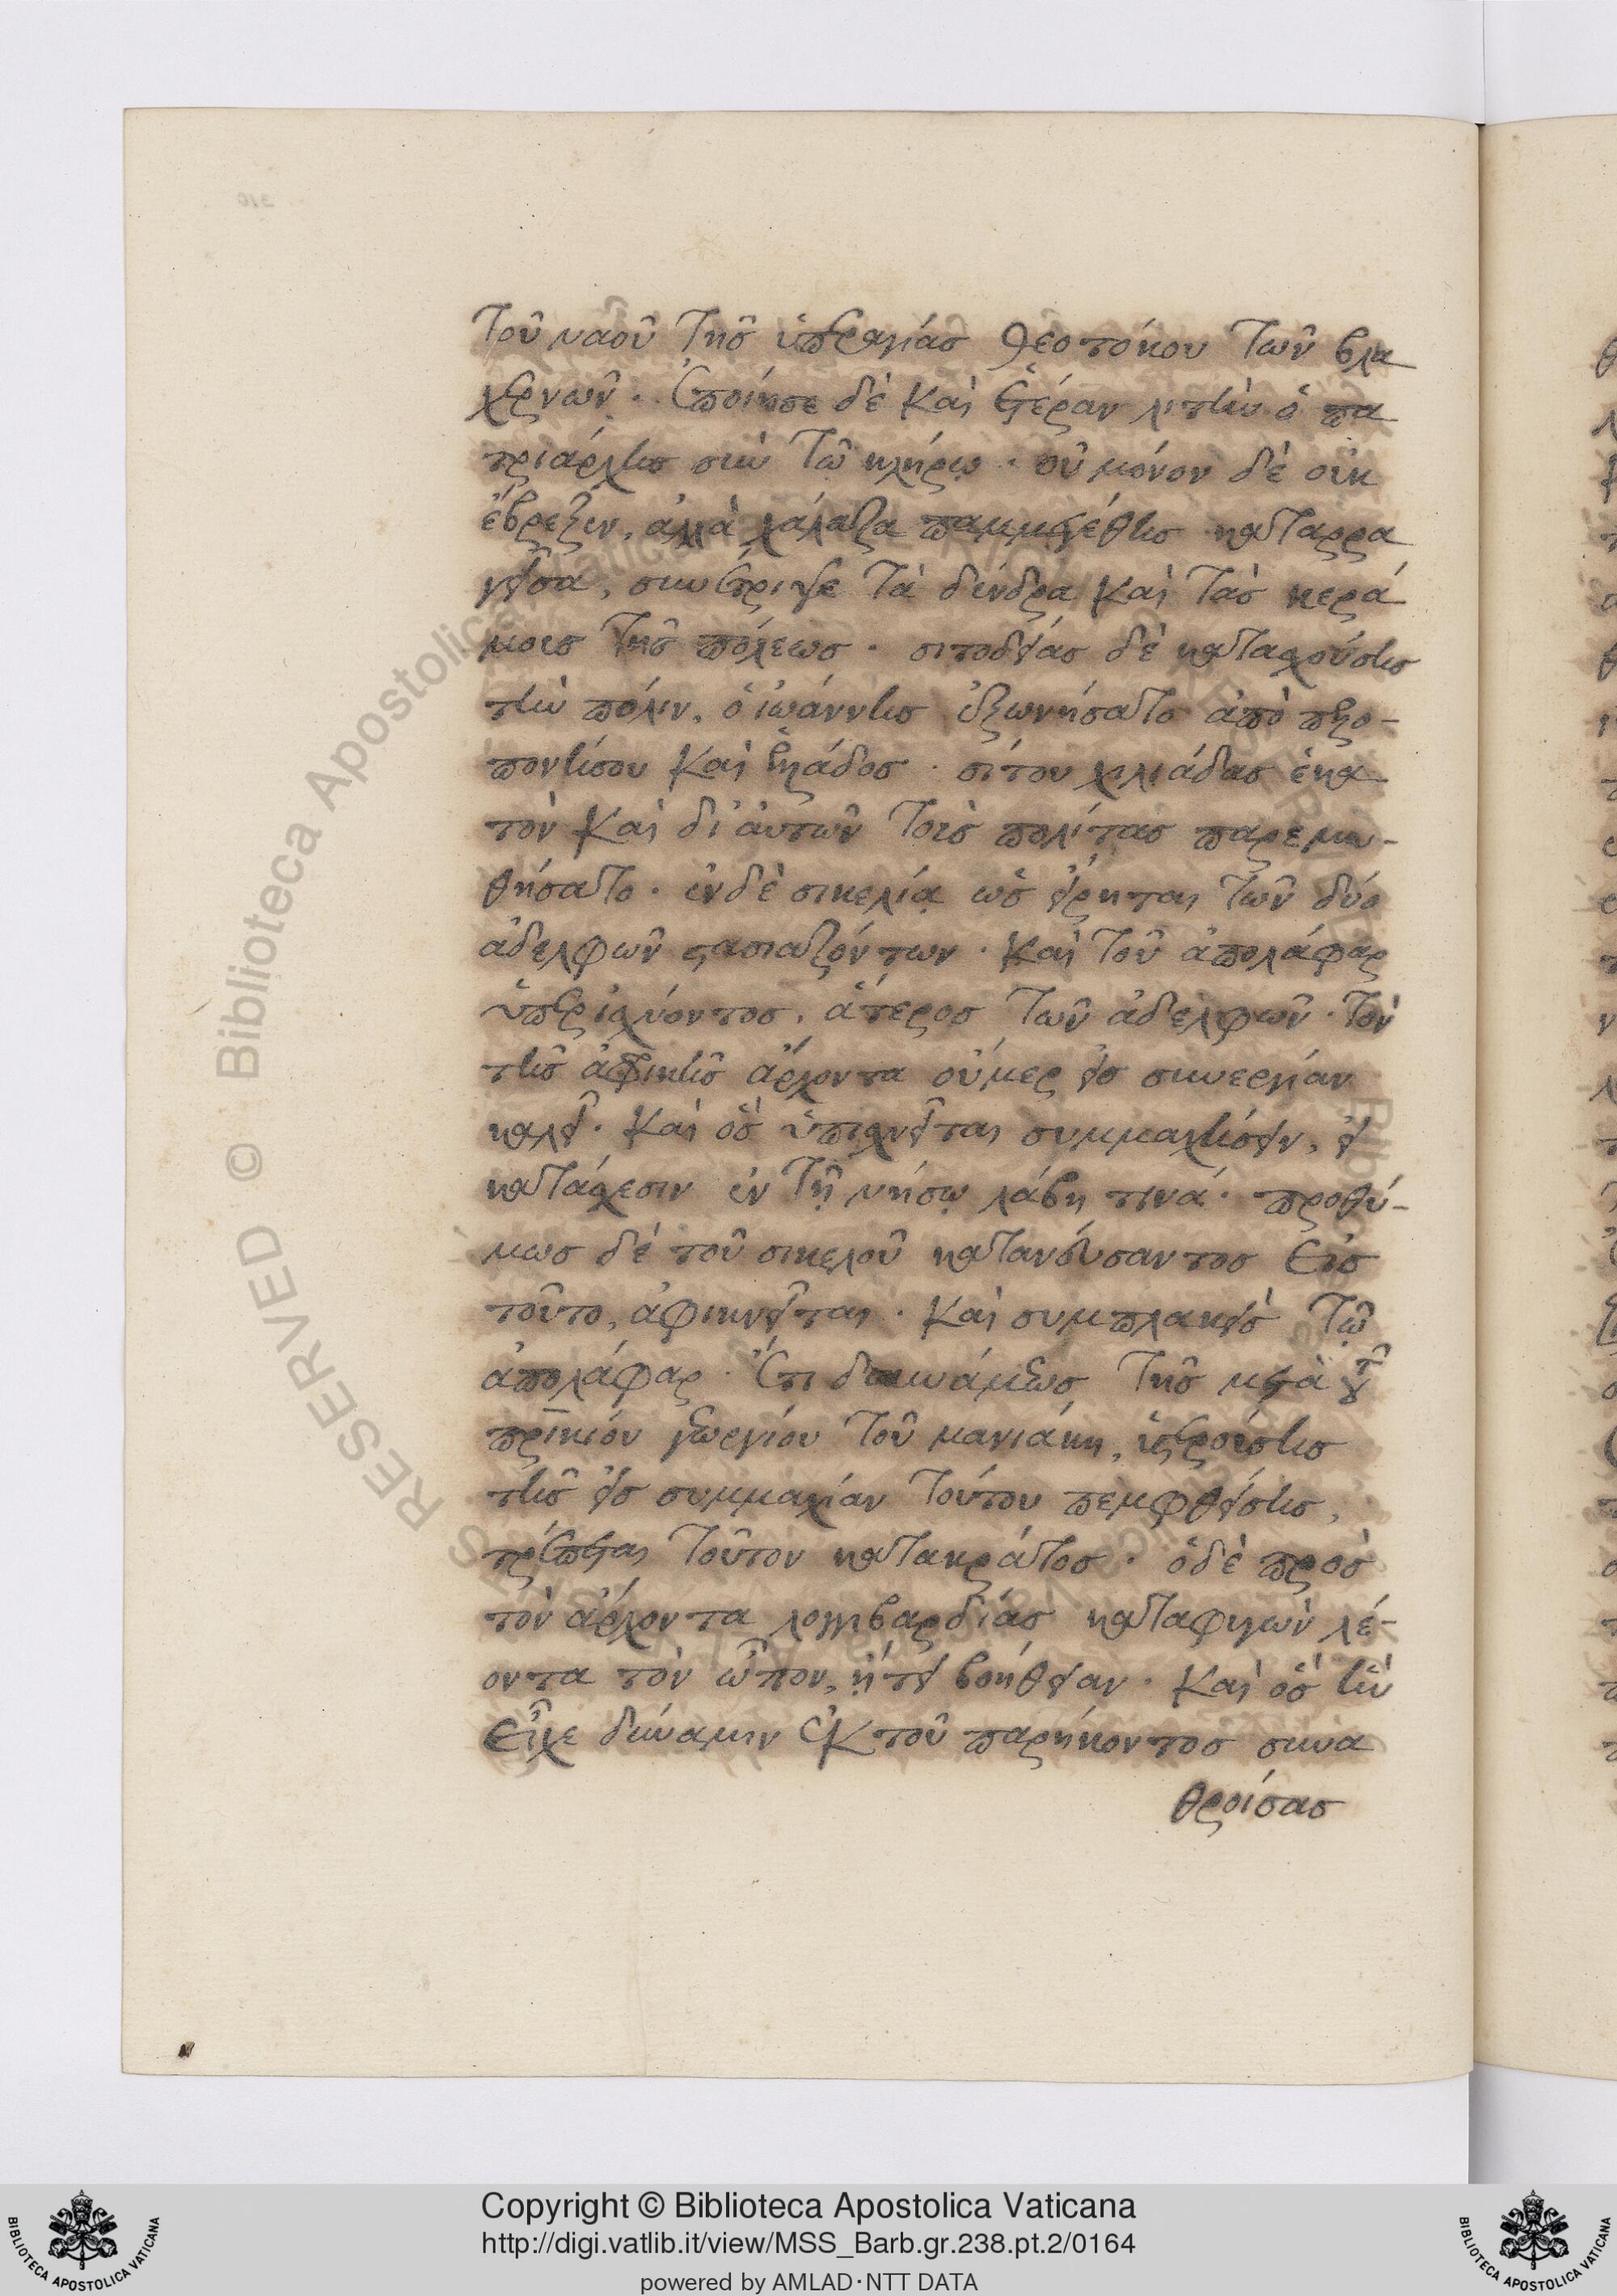 τοῦ ναοῦ τῆς ὑπεραγίας θεοτόκου τῶν βλα
χερνῶν. ἐποίησε δὲ καὶ ἑτέραν λιτὴν ὁ πα
τριάρχης σὺν τῶ κλήρω. οὐ μόνον δὲ οὐκ
ἔβρεξεν, ἀλλὰ χάλαζα παμμεγέθης καταρρα
γεῖσα, συνέτριψε τὰ δένδρα καὶ τὰς κερά
μους τῆς πόλεως. σιτοδείας δὲ κατασχούσης
τὴν πόλιν, ὁ ἰωάννης ἐξωνήσατο ἀπὸ πελο-
πονήσου καὶ ἑλλάδος. σίτου χιλιάδας ἑκα
τὸν καὶ δι' αὐτῶν τοὺς πολίτας παρεμυ-
θήσατο. ἐν δὲ σικελίᾳ ὡς εἴρηται τῶν δύο
ἀδελφῶν στασιαζόντων. καὶ τοῦ ἀπολάφαρ
ὑπερισχύοντος. ἅτερος τῶν ἀδελφῶν. τὸν
τῆς ἀφρικῆς ἄρχοντα οὔμερ εἰς συνεργίαν
καλεῖ. καὶ ὃς ὑπισχνεῖται συμμαχήσειν, εἰ
κατάσχεσιν ἐν τῇ νήσῳ λάβῃ τινά. προθύ-
μως δὲ τοῦ σικελοῦ κατανεύσαντος εἰς
τοῦτο, ἀφικνεῖται. καὶ συμπλακεὶς τῶ
ἀπολάφαρ. ἔτι δυνάμεως τῆς μετὰ τοῦ
πρικίου γεωργίου τοῦ μανιάκη, ὑστερούσης
τῆς εἰς συμμαχίαν τούτου πεμφθείσης,
τρέπεται τοῦτον κατακράτος. ὁ δὲ πρὸς
τὸν ἄρχοντα λογγιβαρδίας καταφυγὼν λέ-
οντα τὸν ὦπον, ᾔτει βοήθειαν. καὶ ὃς ἣν
εἶχε δύναμιν ἐκ τοῦ παρήκοντος συνα
θροίσας
Copyright © Biblioteca Apostolica Vaticana
http://digi.vatlib.it/view/MSS_Barb.gr.238.pt.2/0164
powered by AMLAD·NTT DATA